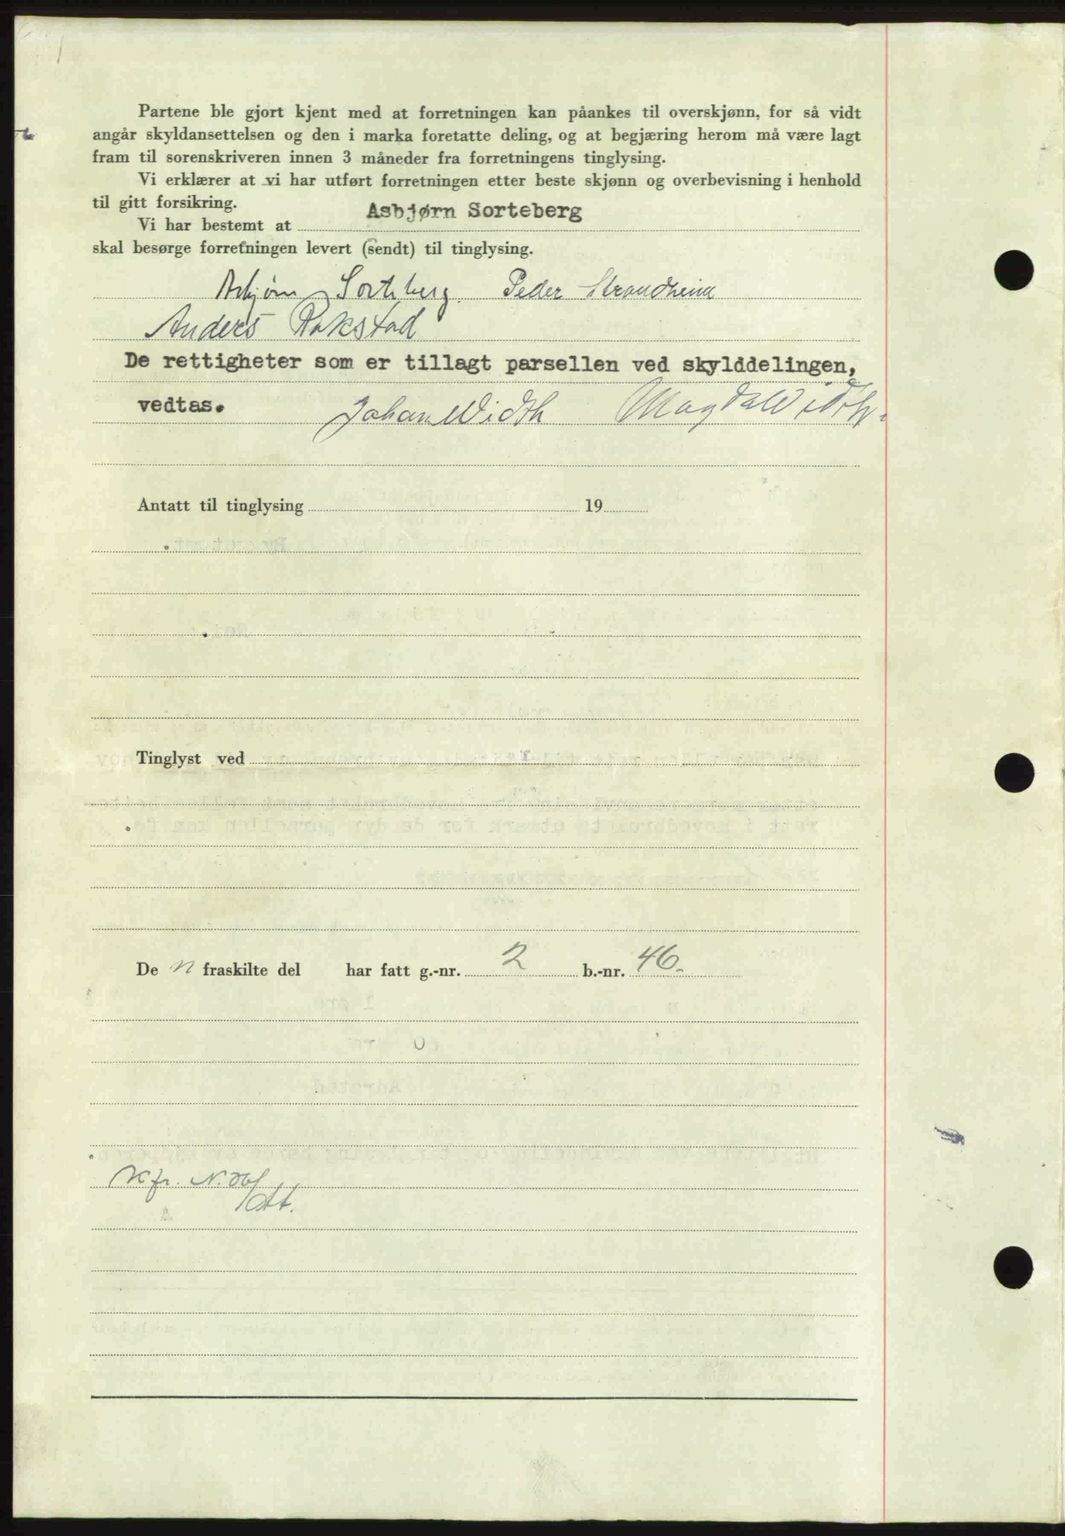 Partene ble gjort kjent med at forretningen kan påankes til overskjønn, for så vidt
angår skyldansettelsen og den i marka foretatte deling, og at begjæring herom må være lagt
fram til sorenskriveren innen 3 måneder fra forretningens tinglysing.
Vi erklærer at vi har utført forretningen etter beste skjønn og overbevisning i henhold
til gitt forsikring.
Vi har bestemt at Asbjørn Sorteberg
skal besørge forretningen levert (sendt) til tinglysing.
Asbjørn Sorteberg. Peder Strandheim
Anders Rokstad
De rettigheter som er tillagt parsellen ved skylddelingen,
vedtas. Johan Width Magda Width.
Antatt til tinglysing 19
Tinglyst ved
De n fraskilte del har fatt g.-nr. 2 b.-nr. 46.
Kfr. N.